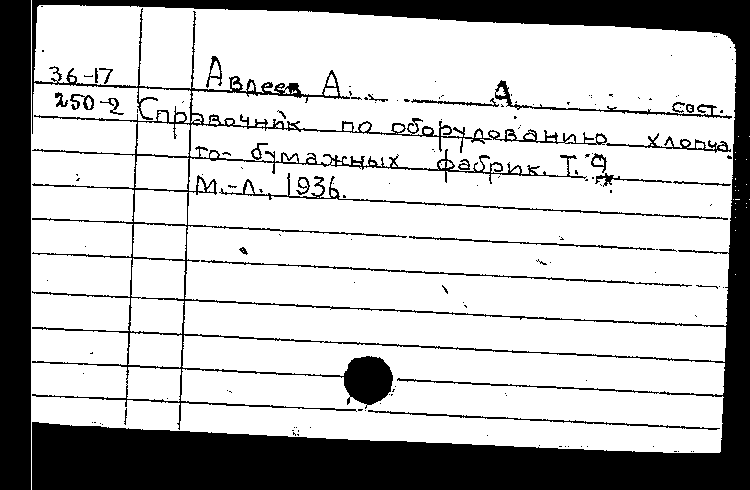 36-17 Авдеев, А. А. сост.
250-2 Справочник по оборудованию хлопча
то-бумажных фабрик. Т.
М.-Л., 1936.